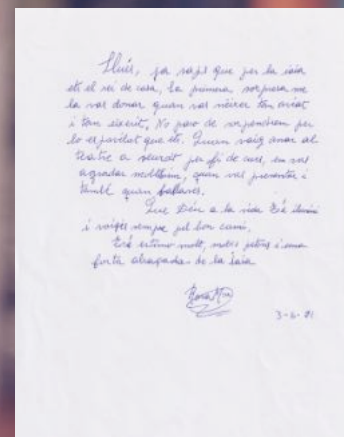 Lluís, ja saps que per la iaia
ets el rei de casa, la primera sorpresa me
la vas donar quan vas néixer tan aviat
i tan eixerit. No paro de sorpendrem per
lo espavilat que ets. Quan vaig anar al
teatre a veure't per fi de curs, em vas
agradar moltíssim, quan vas presentar i
també quan ballaves.
Que Déu a la vida t'il·lumini
i vaigis sempre pel bon camí.
T'estimo molt, molts petons i una
forta abraçada de la iaia
Rosa
3-6-